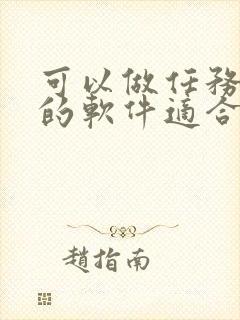 可以做任務
的軟件適合
趙指南